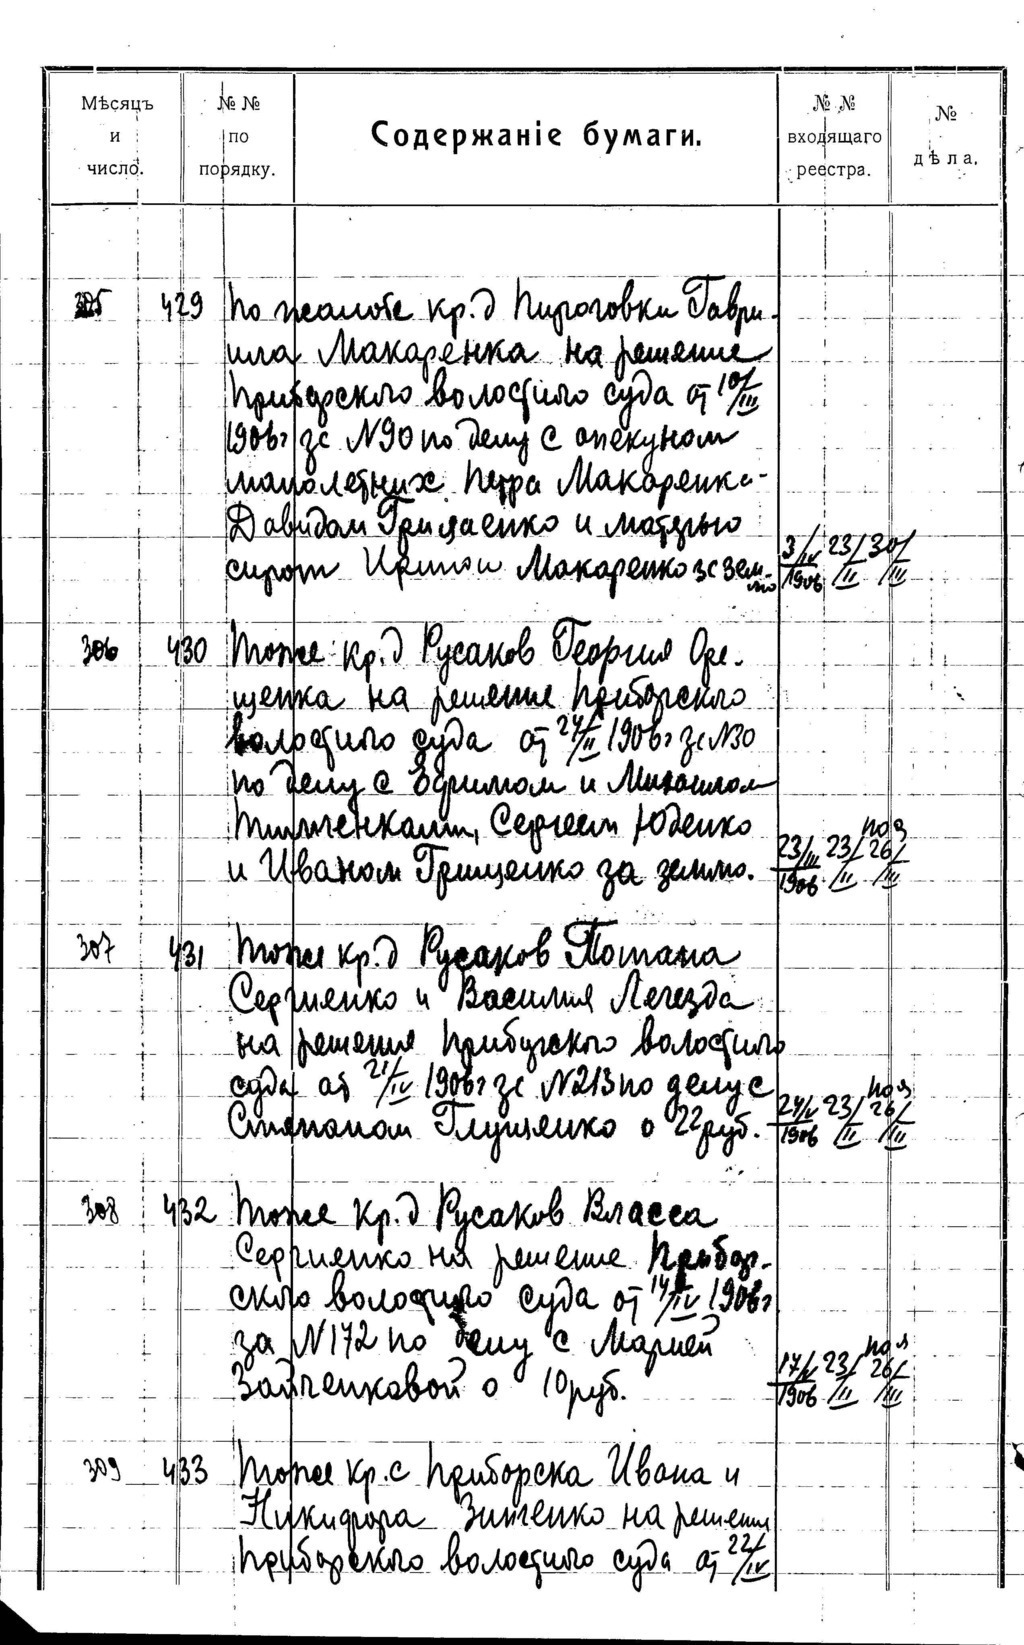 Мѣсяцъ и число.
№ № по порядку.
Содержаніе бумаги.
№ № входящаго реестра.
№ дѣла.
305 429 По жалобе кр. д Пироговки Гаври-
ила Макаренка на решение
Приборского волостного суда от 10/III
1906 г за N90 по делу с опекуном
малолетних Петра Макаренка-
Давидом Грищенко и матерью
сирот Макаренко за зем-
лю 3/V 1906 23/II 30/III
306 430 Тоже кр. д Русаков Георгия Оре-
щенка на решение Приборского
волостного суда от 24/II 1906 г за N30
по делу с Ефимом и Михаилом
Тимченками, Сергеем Юденко
и Иваном Грищенко за землю. 23/III 1906 23/II 26/III
307 431 Тоже кр. д Русаков Потапа
Сергиенко и Василия Легезда
на решения Приборского волостного
суда от 21/IV 1906 г за N213 по делу с
Степаном Глущенко о 22 руб. 24/V 1906 23/II 26/III
308 432 Тоже кр. д Русаков Власса
Сергиенко на решение Прибор-
ского волостного суда от 14/IV 1906 г
за N172 по делу с Марией
Зайченковой о 10 руб. 17/V 1906 23/II 26/III
309 433 Тоже кр. с Приборска Ивана и
Никифора Зинченко на решения
Приборского волостного суда от 22/IV